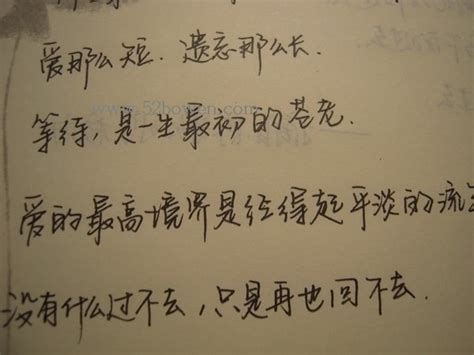 爱那么短.遗忘那么长.
www.52bowen.com
等待,是一生最初的苍老.
爱的最高境界是经得起平淡的流
没有什么过不去,只是再也回不去.